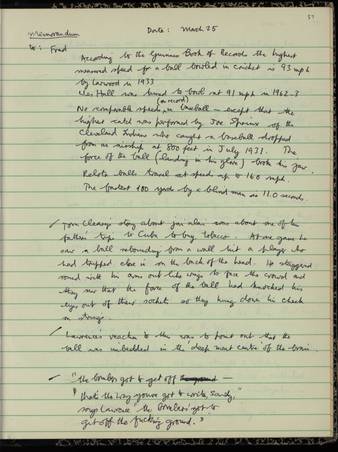 37
Memorandum Date: March 25
to: Fred
According to the Guinness Book of Records the highest
measured speed for a ball bowled in cricket is 93 mph
by Larwood in 1933
Wes Hall was timed to bowl at 91 mph in 1962-3
No comparable speeds (on record) in baseball - except that the
highest catch was performed by Joe Sprinz of the
Cleveland Indians who caught a baseball dropped
from an airship at 800 feet in July 1931. The
force of the ball (landing in his glove) broke his jaw.
Pelota balls travel at speeds up to 160 mph.
The fastest 100 yards by a blind man is 11.0 seconds.
✓ Tom Clancy's story about jai alai was about one of his
father's trips to Cuba to buy tobacco. At one game he
saw a ball rebounding from a wall hit a player who
had stepped close in on the back of the head. He staggered
round with his arms out like wings to face the crowd and
they saw that the force of the ball had knocked his
eyes out of their sockets so they hung down his cheek
on strings.
✓ Lawrence's reaction to this was to point out that the
ball was imbedded in the deep most centre of the brain.
✓ - "the bowlers got to get off the ground -
"that's the way you've got to write, Sandy,"
says Lawrence "the bowlers got to
get off the fucking ground."